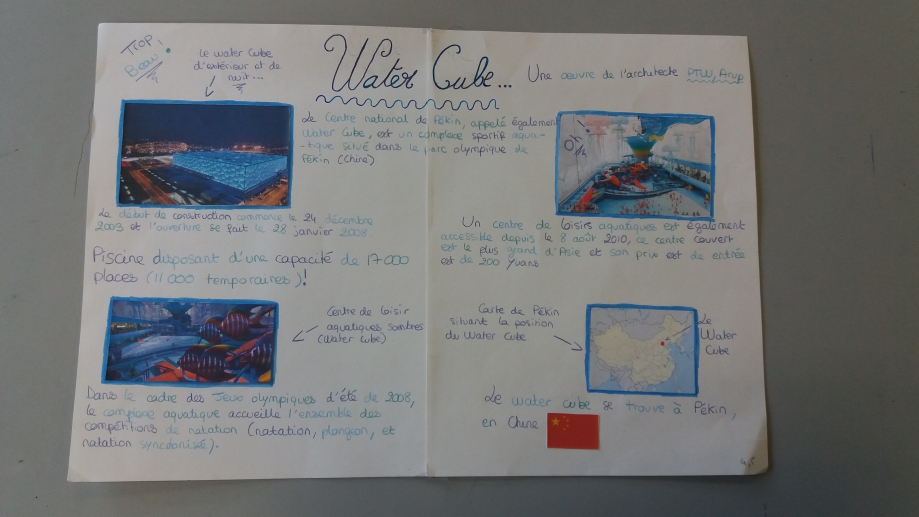 Trop
Beau !
Le water Cube
d'extérieur et de
nuit...
Water Cube...
Une œuvre de l'architecte PTW, Arup
Le Centre national de Pékin, appelé également
Water Cube, est un complexe sportif aqua-
-tique situé dans le parc olympique de
Pékin (Chine)
Oh !
Le début de construction commence le 24 décembre
2003 et l'ouverture se fait le 28 janvier 2008.
Piscine disposant d'une capacité de 17000
places (11 000 temporaires) !
Un centre de loisirs aquatiques est également
accessible depuis le 8 août 2010, ce centre couvert
est le plus grand d'Asie et son prix est de entrée
est de 200 Yuans
Centre de loisir
aquatiques sombres
(Water Cube)
Carte de Pékin
situant la position
du Water Cube
Le
Water
Cube
Dans le cadre des Jeux olympiques d'été de 2008,
le complexe aquatique accueille l'ensemble des
compétitions de natation (natation, plongeon, et
natation syncronisé).
Le water cube se trouve à Pékin,
en Chine
4,5